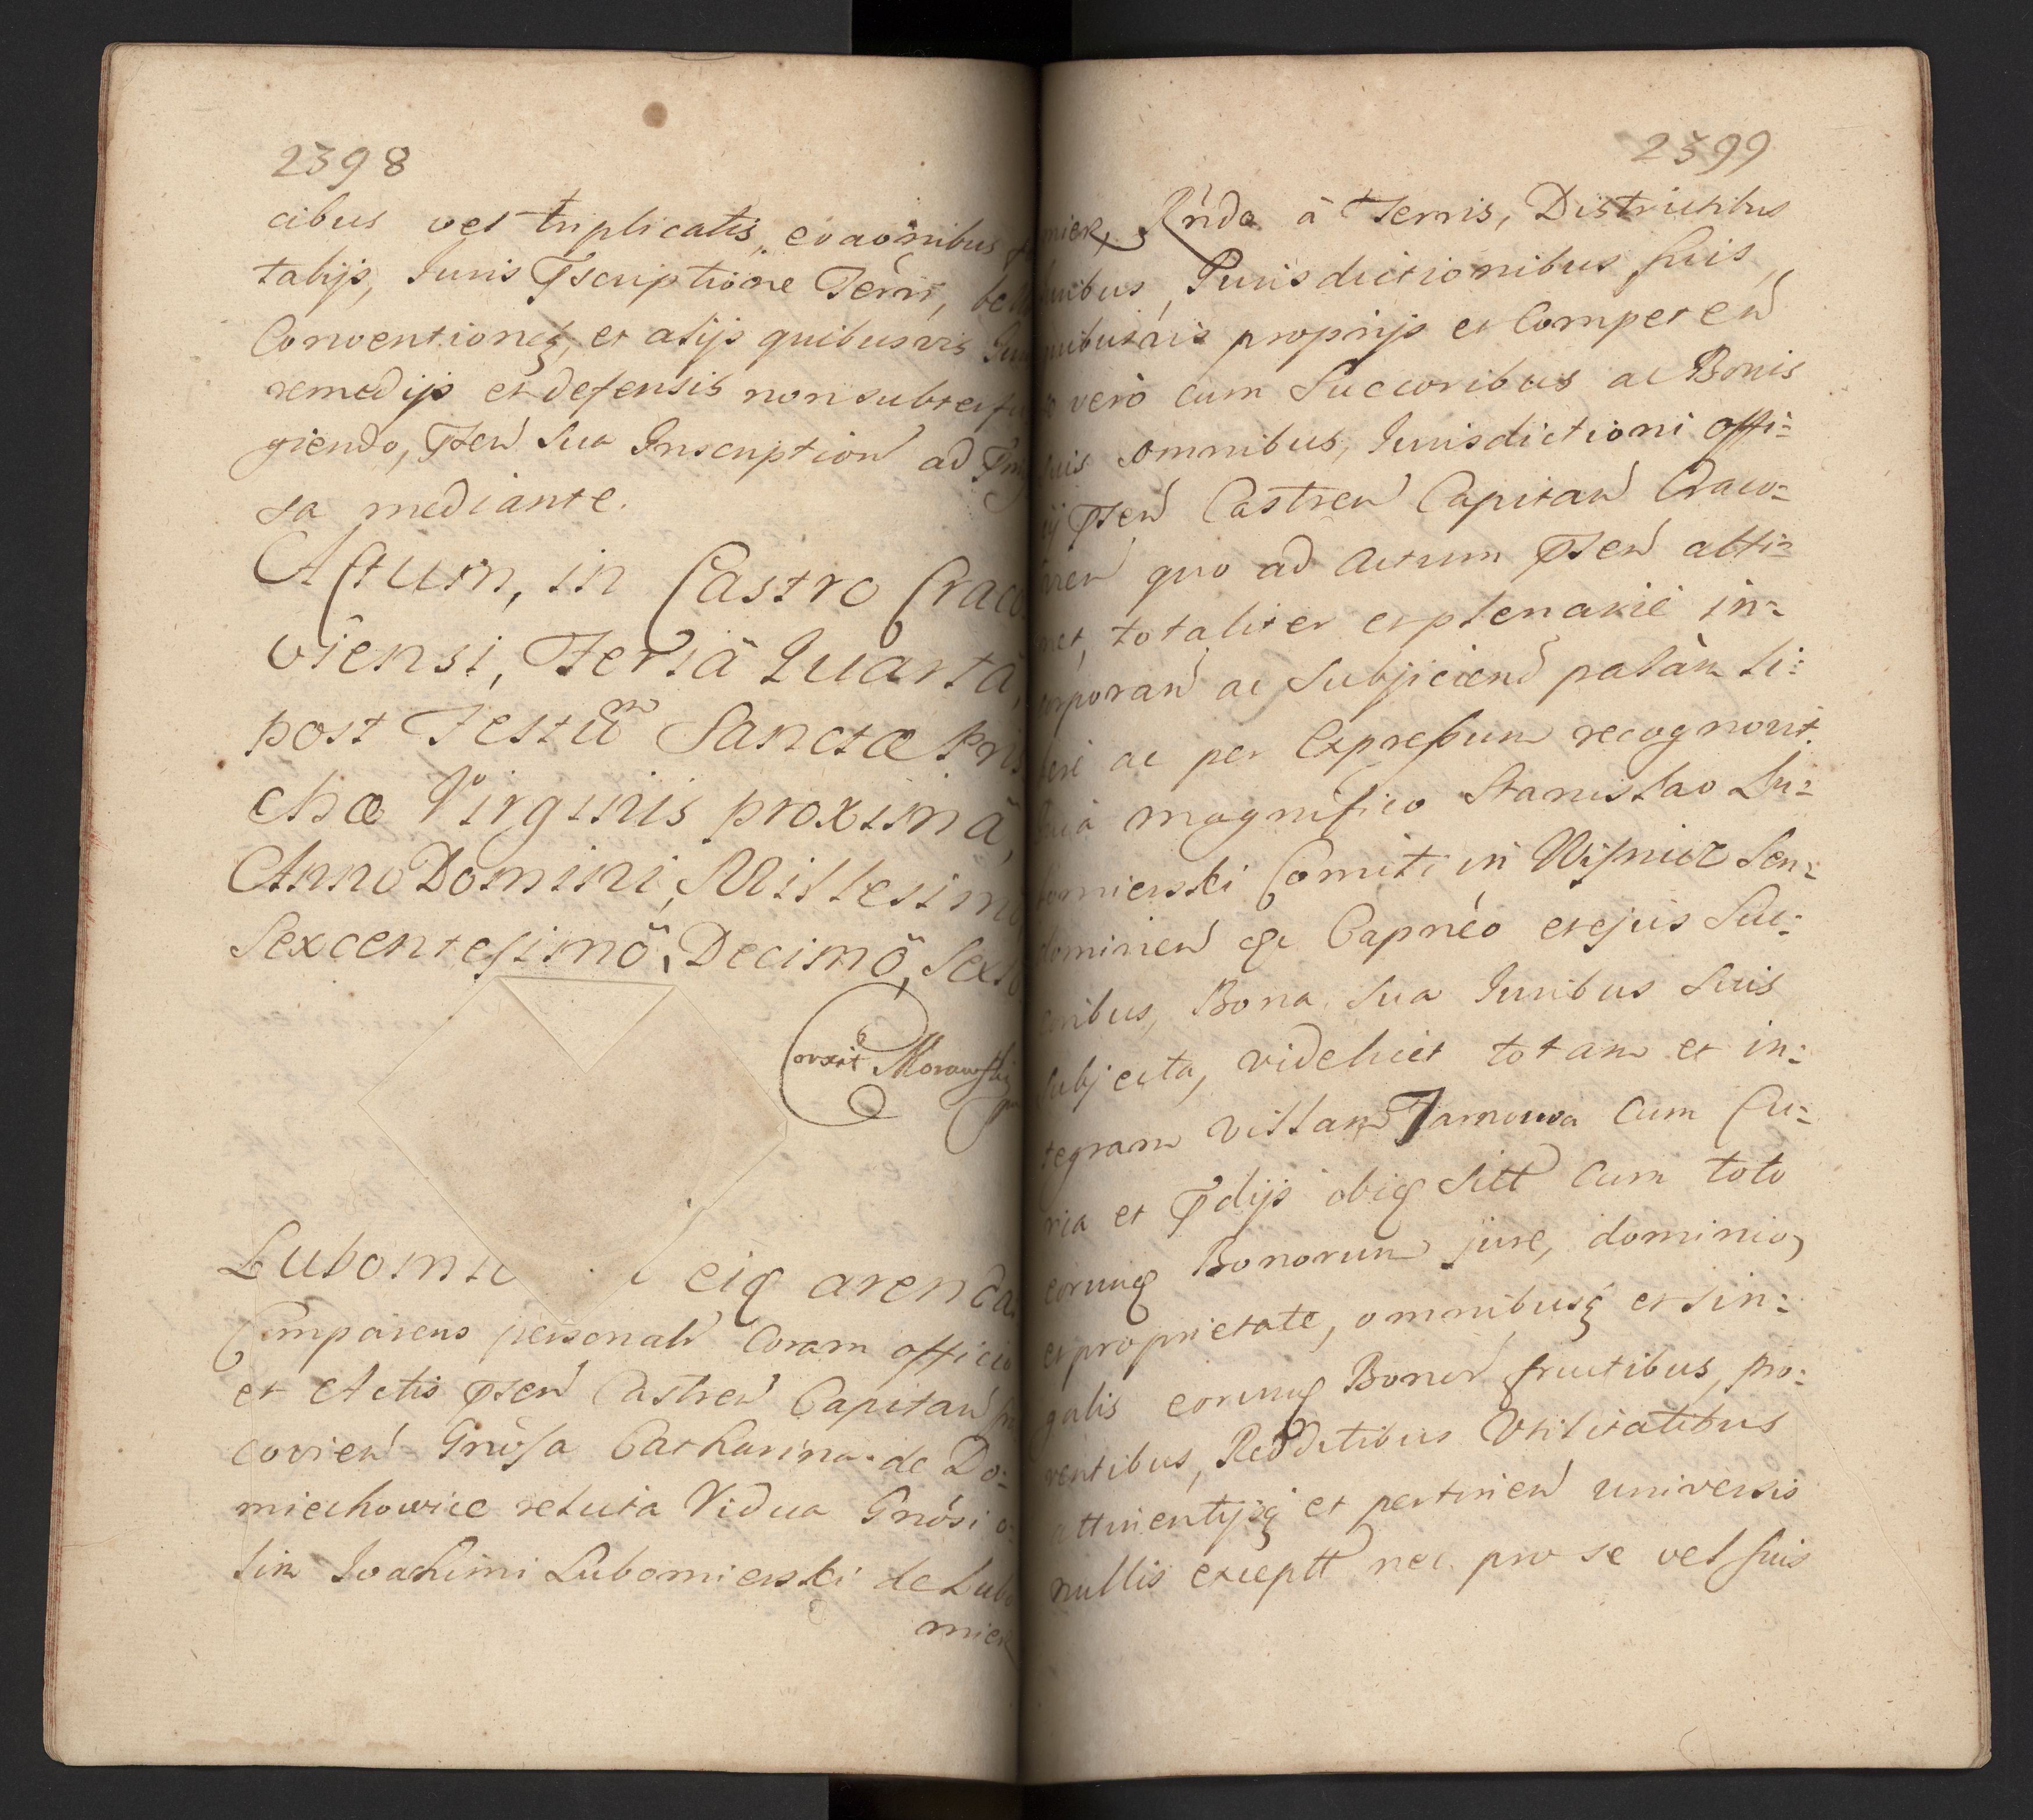 2398
cibus vel triplicatis, evaoñibus
tabijs, Juris Pscriptiõne Terrr̃,
Conventionq̃, et alijs quibusvis
remedijs et defensis non subterfu
giendo, Pſen̄ sua Inscription̄ ad
sa mediante.
Actum, in Castro Craco
viensi, Feriâ Quartâ,
post Festũm Sanctæ Pris
chæ Virginis proximâ,
Anno Domini, Millesimo
Sexcentesimô, Decimô, Sexto
Correxit Morawski
Lubomie eiq arenda
Comparens personalr̃ Coram officio
et Actis Pſen̄ Castren̄ Capitan̄
covien̄ Gnõsa Catharina de Do:
miechowice relicta Vidua Gnõsi o:
lim Joachimi Lubomierski de Lubo
mier
2399
mier, Rñda â Terris, Districtibus
nibus, Jurisdictionibus suis
nibusvis proprijs et Competen̄
vero cum Succoribus ac Bonis
suis omnibus, Jurisdictioni offi=
ij Pſen̄ Castren̄ Capitan̄ Craco=
vien̄ quo ad Actum Pſen̄ atti=
net, totaliter et plenariè in=
corporan̄ ac Subjiciend̄ palàm li=
berè ac per Expressum recognovit.
Quia magnifico Stanislao Lu=
bomierski Comiti in Wisnicz Sen=
domirien̄ &c Capnẽo et ejus Suc=
oribus, Bona sua Juribus suis
subjecta, videlicet totam et in=
tegram villam Jamowa cum Cu=
ria et Pdijs ibiq̃ sitt cum toto
eorumq̃ Bonorum jure, dominio,
et proprietate, omnibusq̃ et sin=
gulis eorumq̃ Bonor̃ fructibus, pro=
ventibus, Redditibus Utilitatibus
attinentijsq̃ et pertinen̄ universis
nullis exceptt nec pro se vel suis